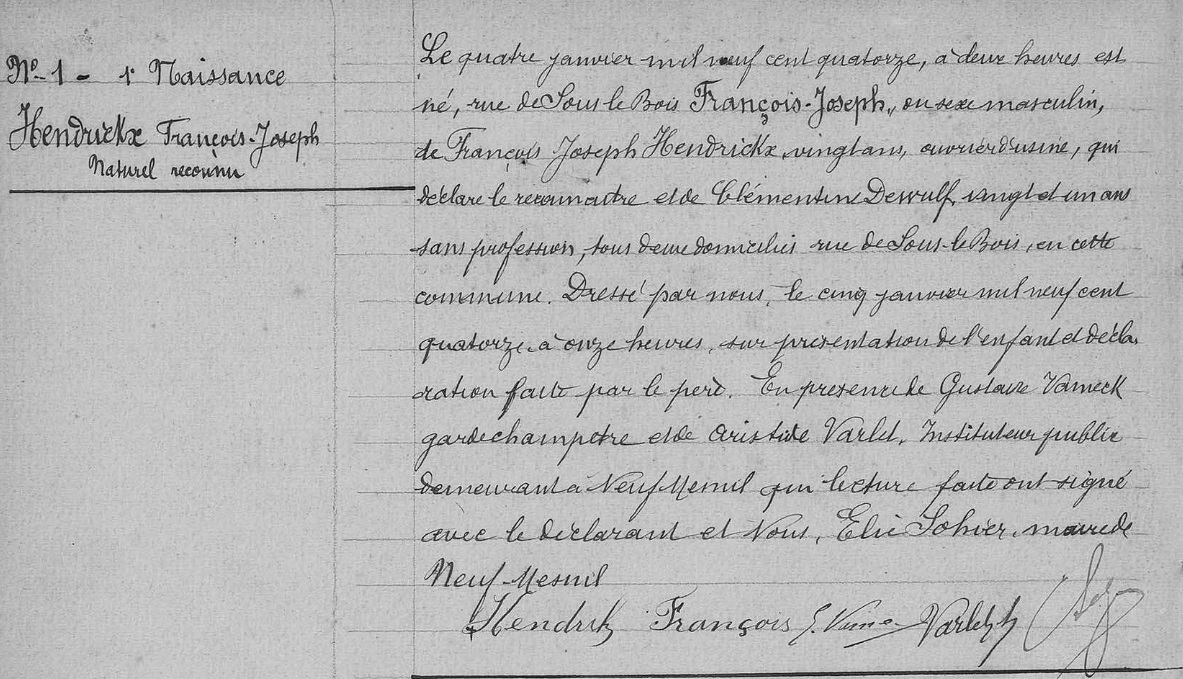 Nº 1 - 1e Naissance
Hendrickx François-Joseph
Naturel reconnu
Le quatre janvier mil neuf cent quatorze, à deux heures est
né, rue de Sous-le-Bois François-Joseph, du sexe masculin,
de François Joseph Hendrickx, vingt ans, ouvrier d'usine, qui
déclare le reconnaitre et de Clémentine Dewulf, vingt et un ans
sans profession, tous deux domiciliés rue de Sous-le-Bois, en cette
commune. Dressé par nous, le cinq janvier mil neuf cent
quatorze à onze heures, sur présentation de l'enfant et décla
ration faite par le père. En présence de Gustave
garde champetre et de Aristide Varlet, Instituteur public
demeurant à Neuf-Mesnil qui lecture faite ont signé
avec le déclarant et Nous, Elie Sohier, maire de
Neuf-Mesnil
Hendrik François Varlet